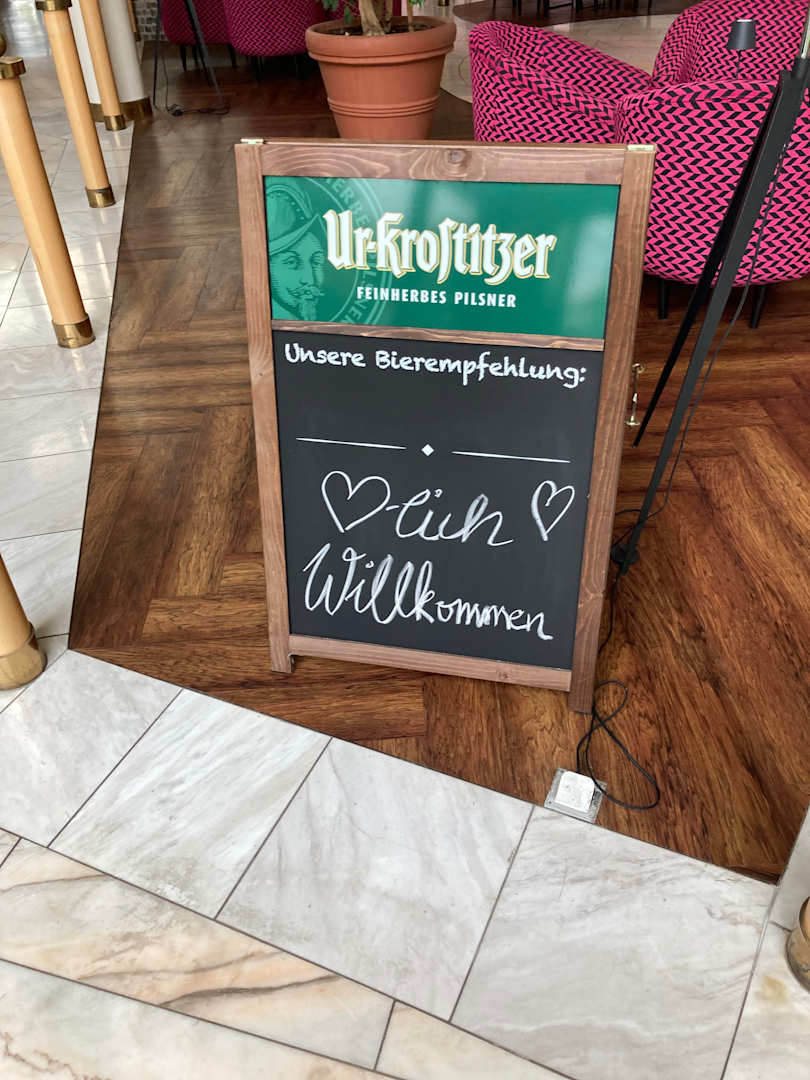 Ur-Krostitzer
FEINHERBES PILSNER
Unsere Bierempfehlung:
♡-lich ♡
Willkommen